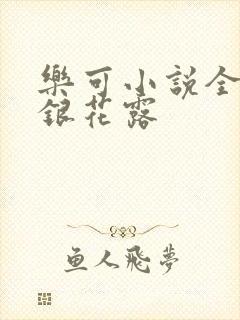 樂可小説全
銀花露
鱼人飛夢